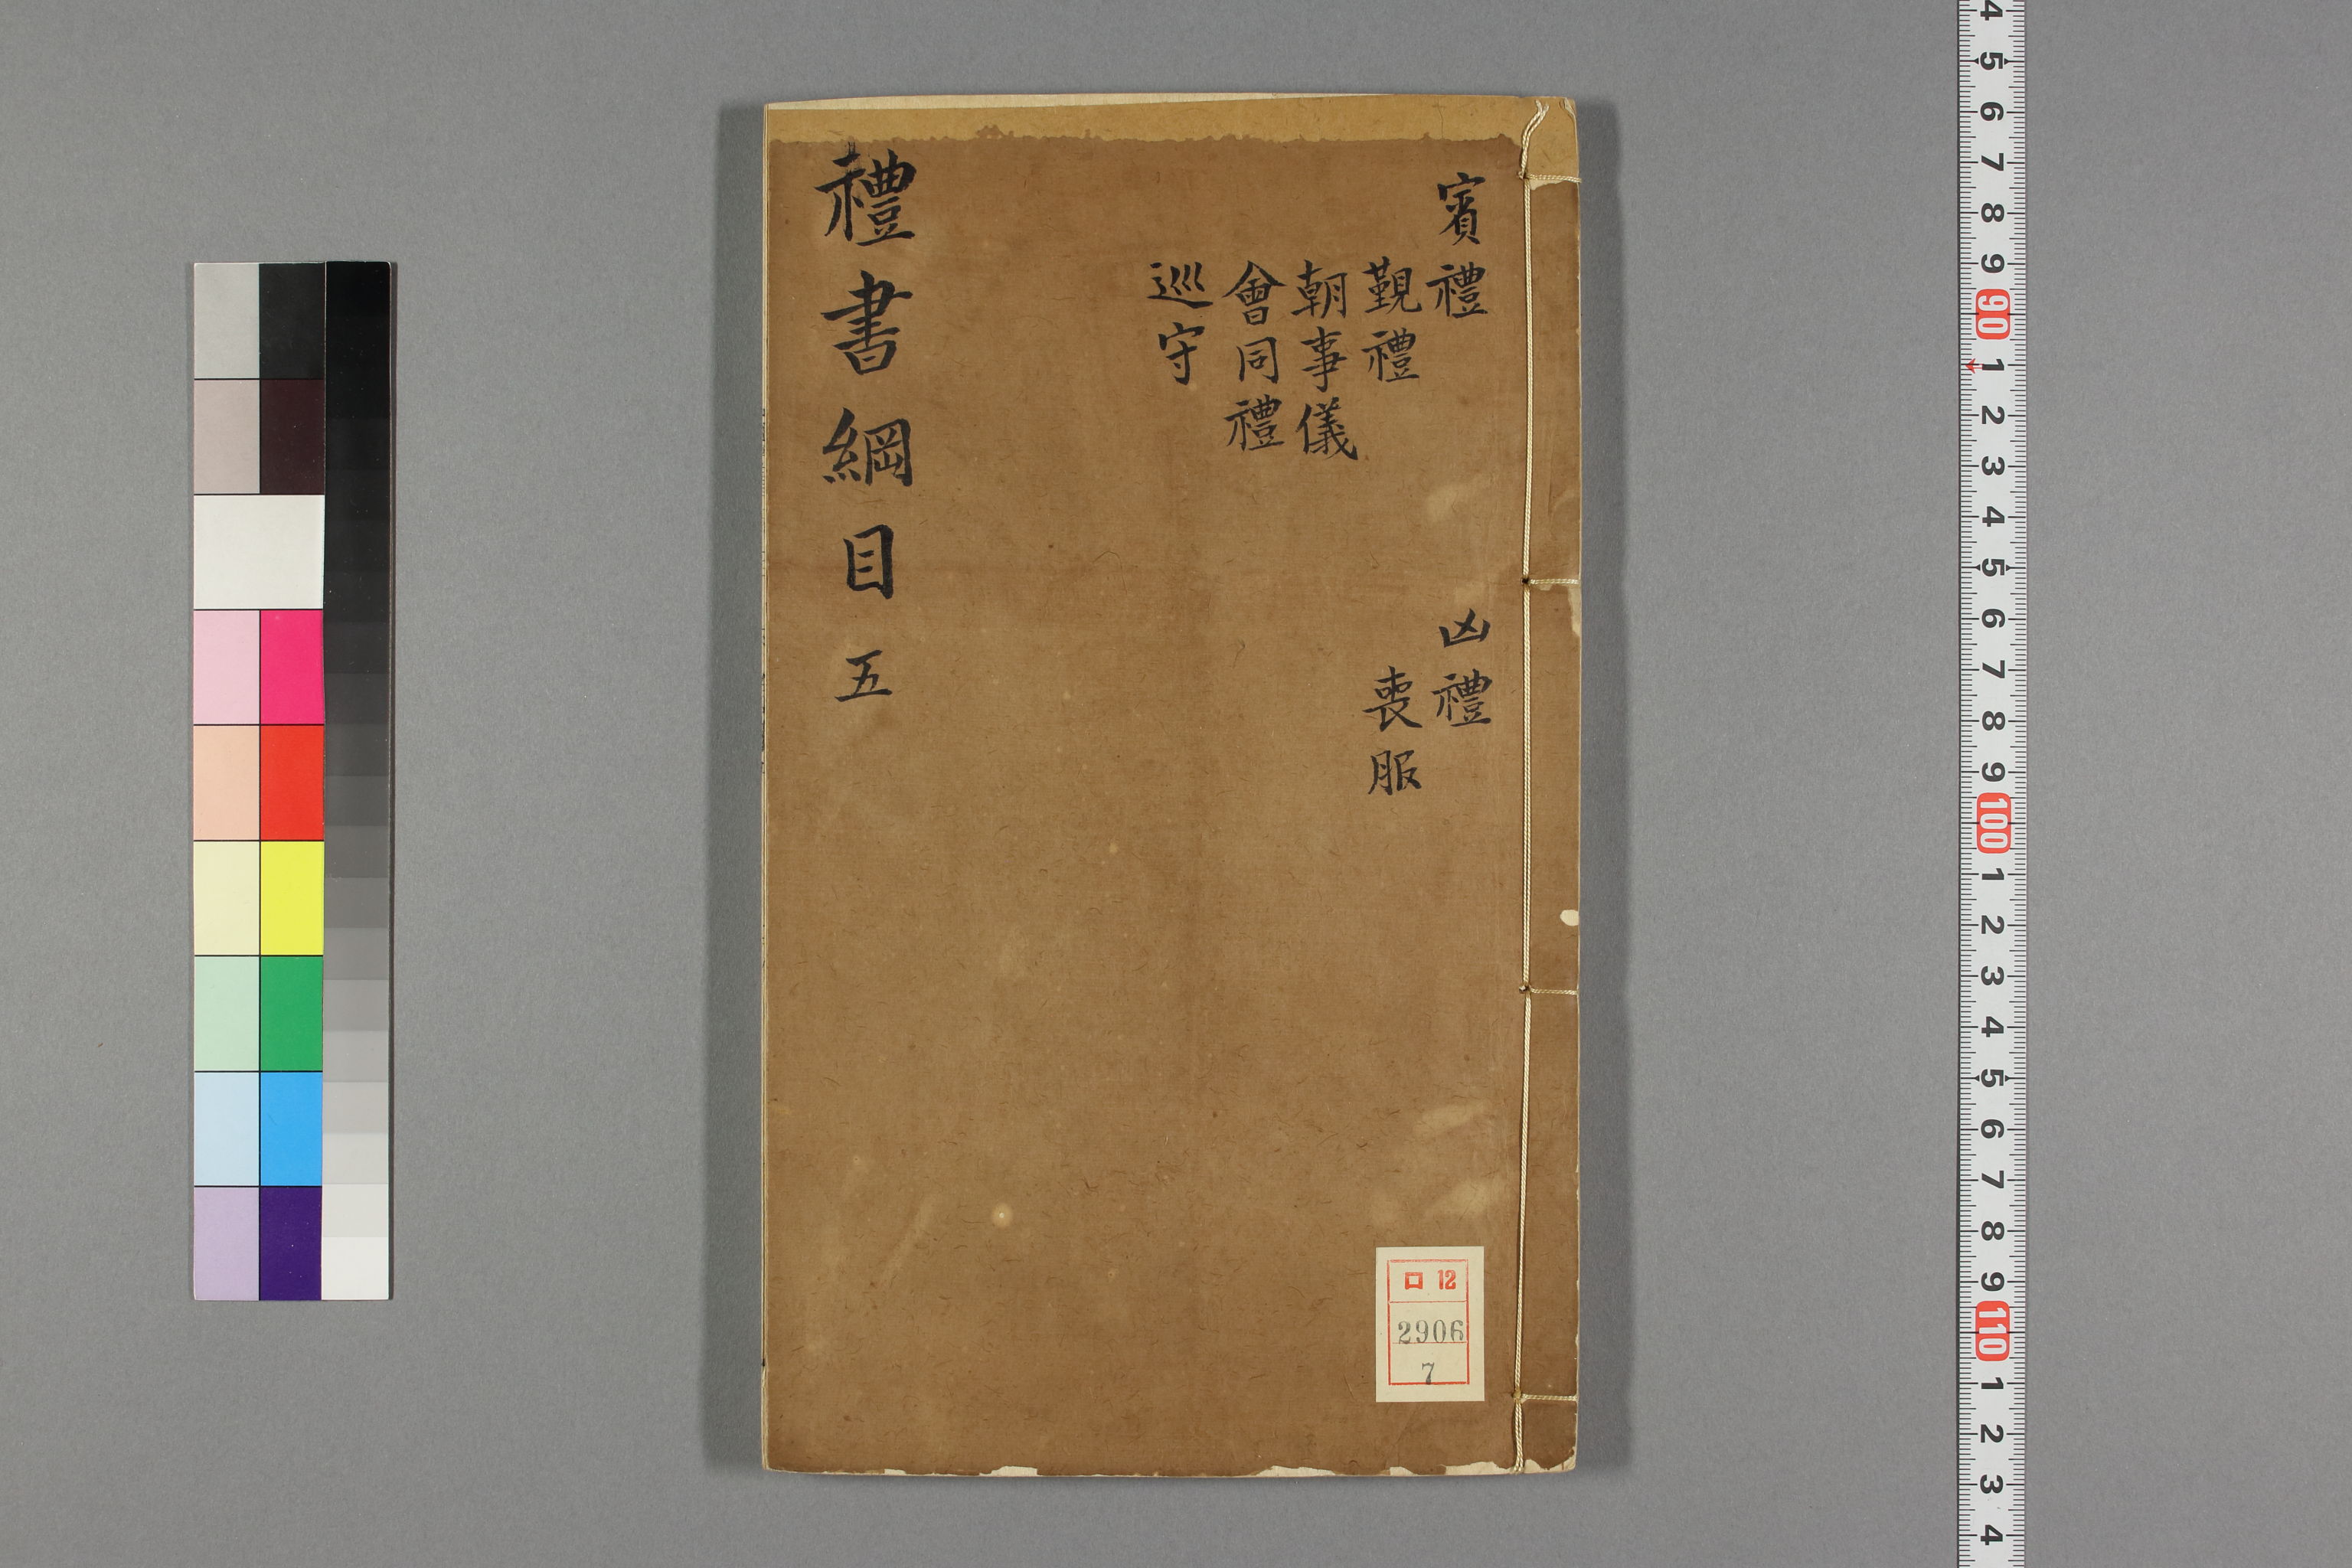 賓禮
覲禮
朝事儀
會同禮
巡守
凶禮
喪服
禮書綱目五
ロ 12
2906
7
4 5 6 7 8 9 90 1 2 3 4 5 6 7 8 9 100 1 2 3 4 5 6 7 8 9 110 1 2 3 4